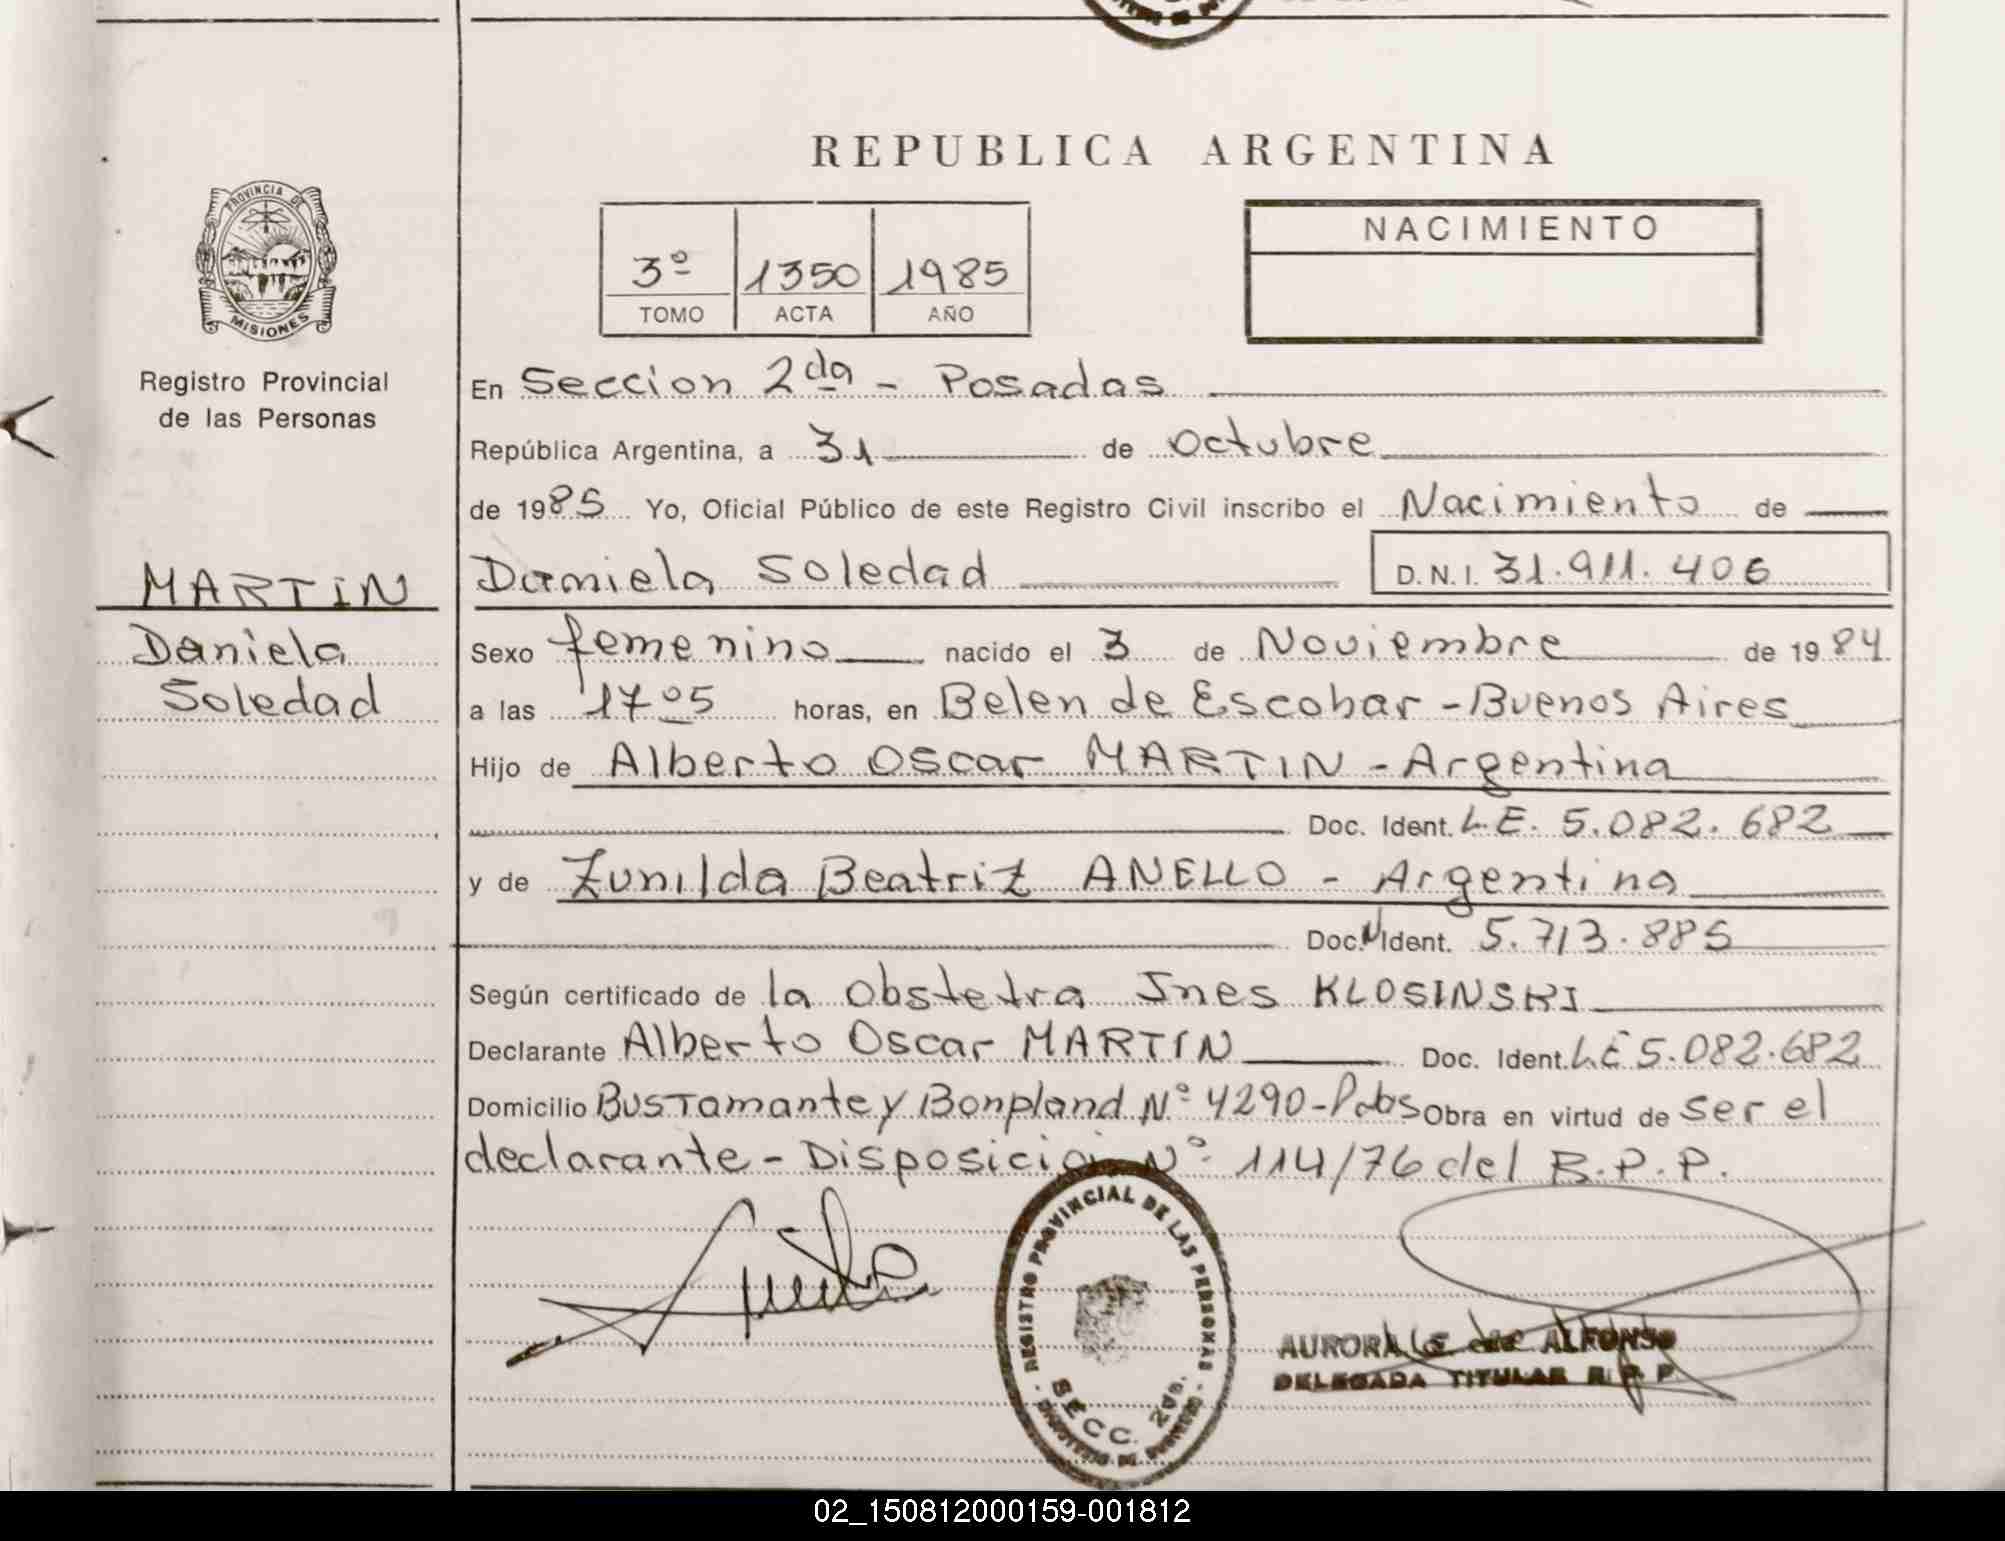 REPUBLICA ARGENTINA
PROVINCIA DE
MISIONES
Registro Provincial
de las Personas
3º 1350 1985
TOMO ACTA AÑO
NACIMIENTO
En Seccion 2da - Posadas
República Argentina, a 31 de octubre
de 1985 Yo, Oficial Público de este Registro Civil inscribo el Nacimiento de
MARTIN
Daniela
Soledad
Daniela Soledad D.N.I. 31.911.406
Sexo femenino nacido el 3 de Noviembre de 1984
a las 17 05 horas, en Belen de Escobar - Buenos Aires
Hijo de Alberto Oscar MARTIN - Argentina
Doc. Ident. L.E. 5.082.682
y de Zunilda Beatriz ANELLO - Argentina
Doc. Ident. 5.713.885
Según certificado de la Obstetra Ines KLOSINSKI
Declarante Alberto Oscar MARTIN Doc. Ident. L.E 5.082.682
Domicilio Bustamante y Bonpland Nº 4290 - Pdas Obra en virtud de ser el
declarante - Disposición Nº 114/76 del R.P.P.
REGISTRO PROVINCIAL DE LAS PERSONAS
SECC. 2da.
AURORA de ALFONSO
DELEGADA TITULAR R.P.P
02_150812000159-001812